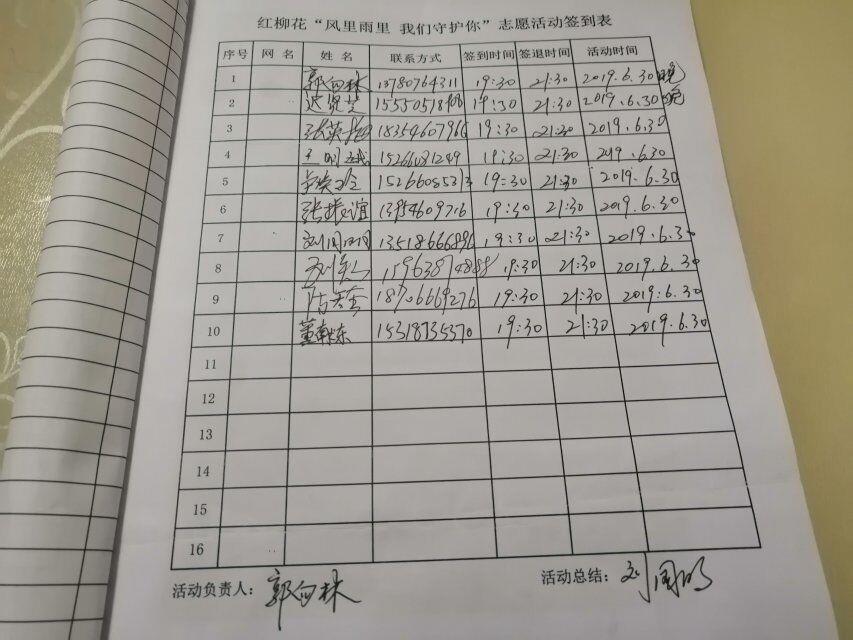 红柳花“风里雨里 我们守护你”志愿活动签到表
序号 网 名 姓 名 联系方式 签到时间 签退时间 活动时间
1 郭向林 13780764311 19:30 21:30 2019.6.30晚
2 19:30 21:30 2019.6.30晚
3 18354607966 19:30 21:30 2019.6.30
4 15266081249 19:30 21:30 2019.6.30
5 19:30 21:30 2019.6.30
6 张振谊 13954609716 19:30 21:30 2019.6.30
7 13518666896 19:30 21:30 2019.6.30
8 19:30 21:30 2019.6.30
9 18706669276 19:30 21:30 2019.6.30
10 15318735370 19:30 21:30 2019.6.30
11
12
13
14
15
16
活动负责人: 郭向林 活动总结: 刘国明